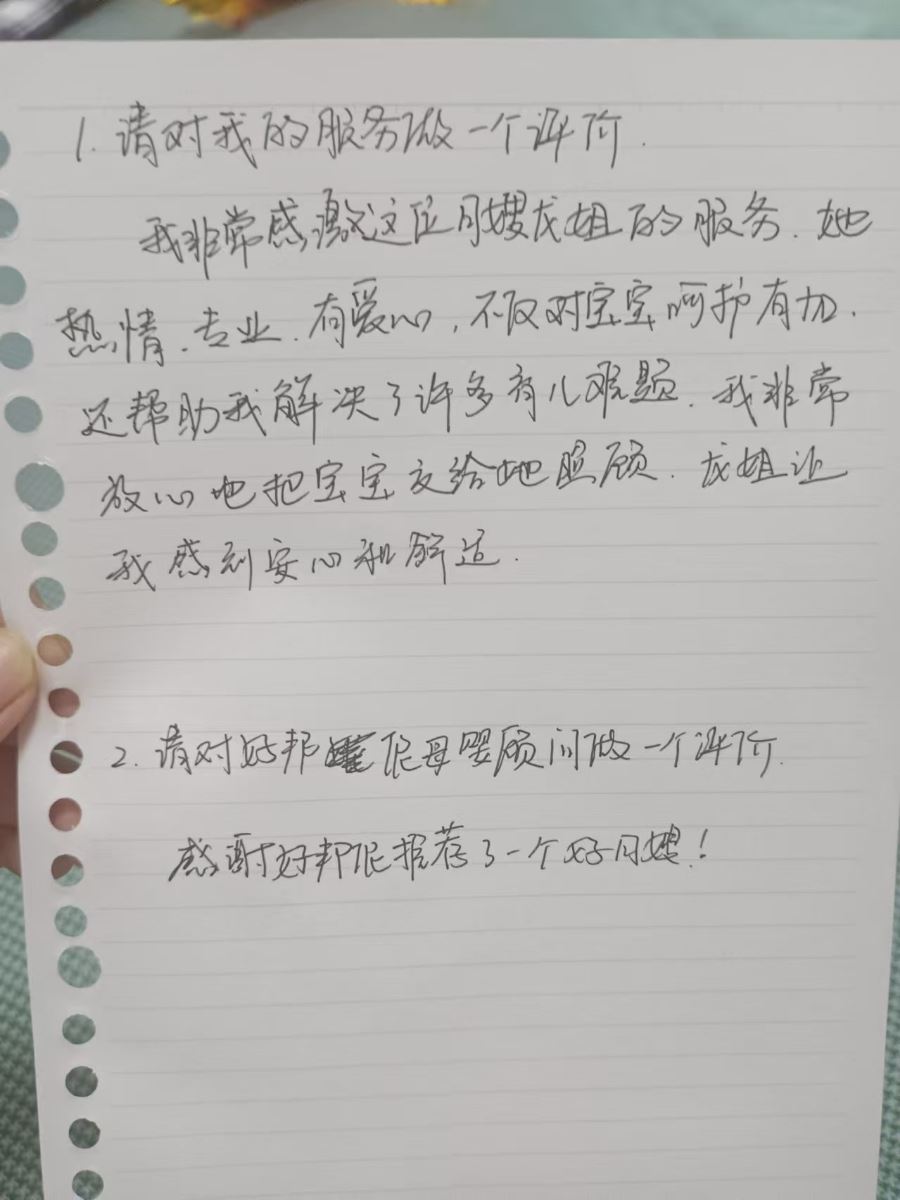 1. 请对我的服务做一个评价.
我非常感激这位月嫂龙姐的服务. 她
热情、专业、有爱心, 不仅对宝宝呵护有加.
还帮助我解决了许多育儿难题. 我非常
放心地把宝宝交给她照顾. 龙姐让
我感到安心和舒适.
2. 请对好邦伲母婴顾问做一个评价.
感谢好邦伲推荐了一个好月嫂!